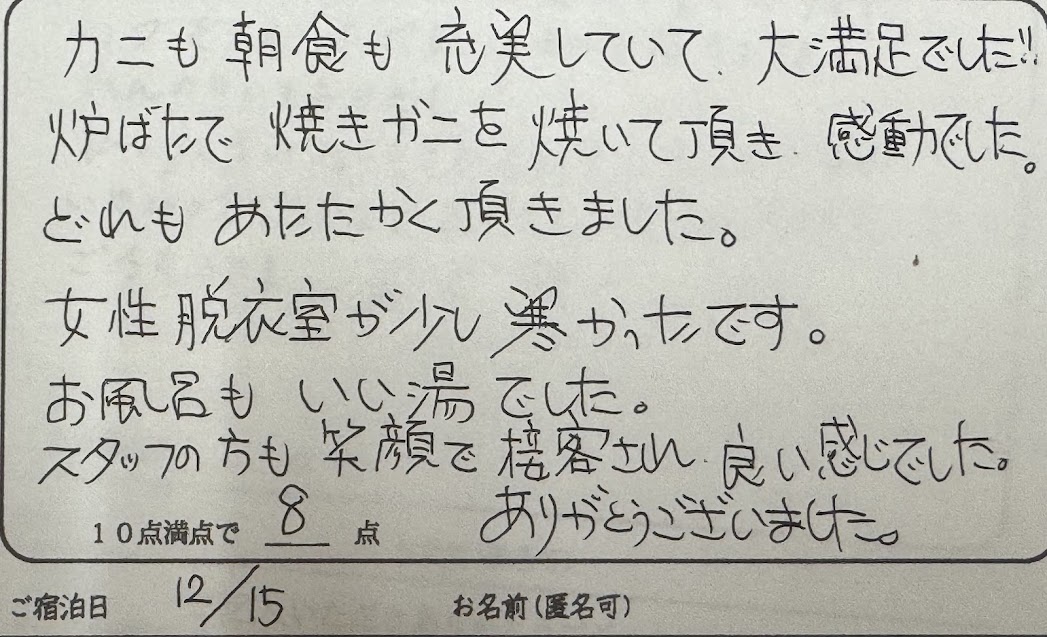 カニも朝食も充実していて、大満足でした!!
炉ばたで焼きガニを焼いて頂き、感動でした。
どれもあたたかく頂きました。
女性脱衣室が少し寒かったです。
お風呂もいい湯でした。
スタッフの方も笑顔で接客され、良い感じでした。
ありがとうございました。
10点満点で 8 点
ご宿泊日 12/15 お名前(匿名可)